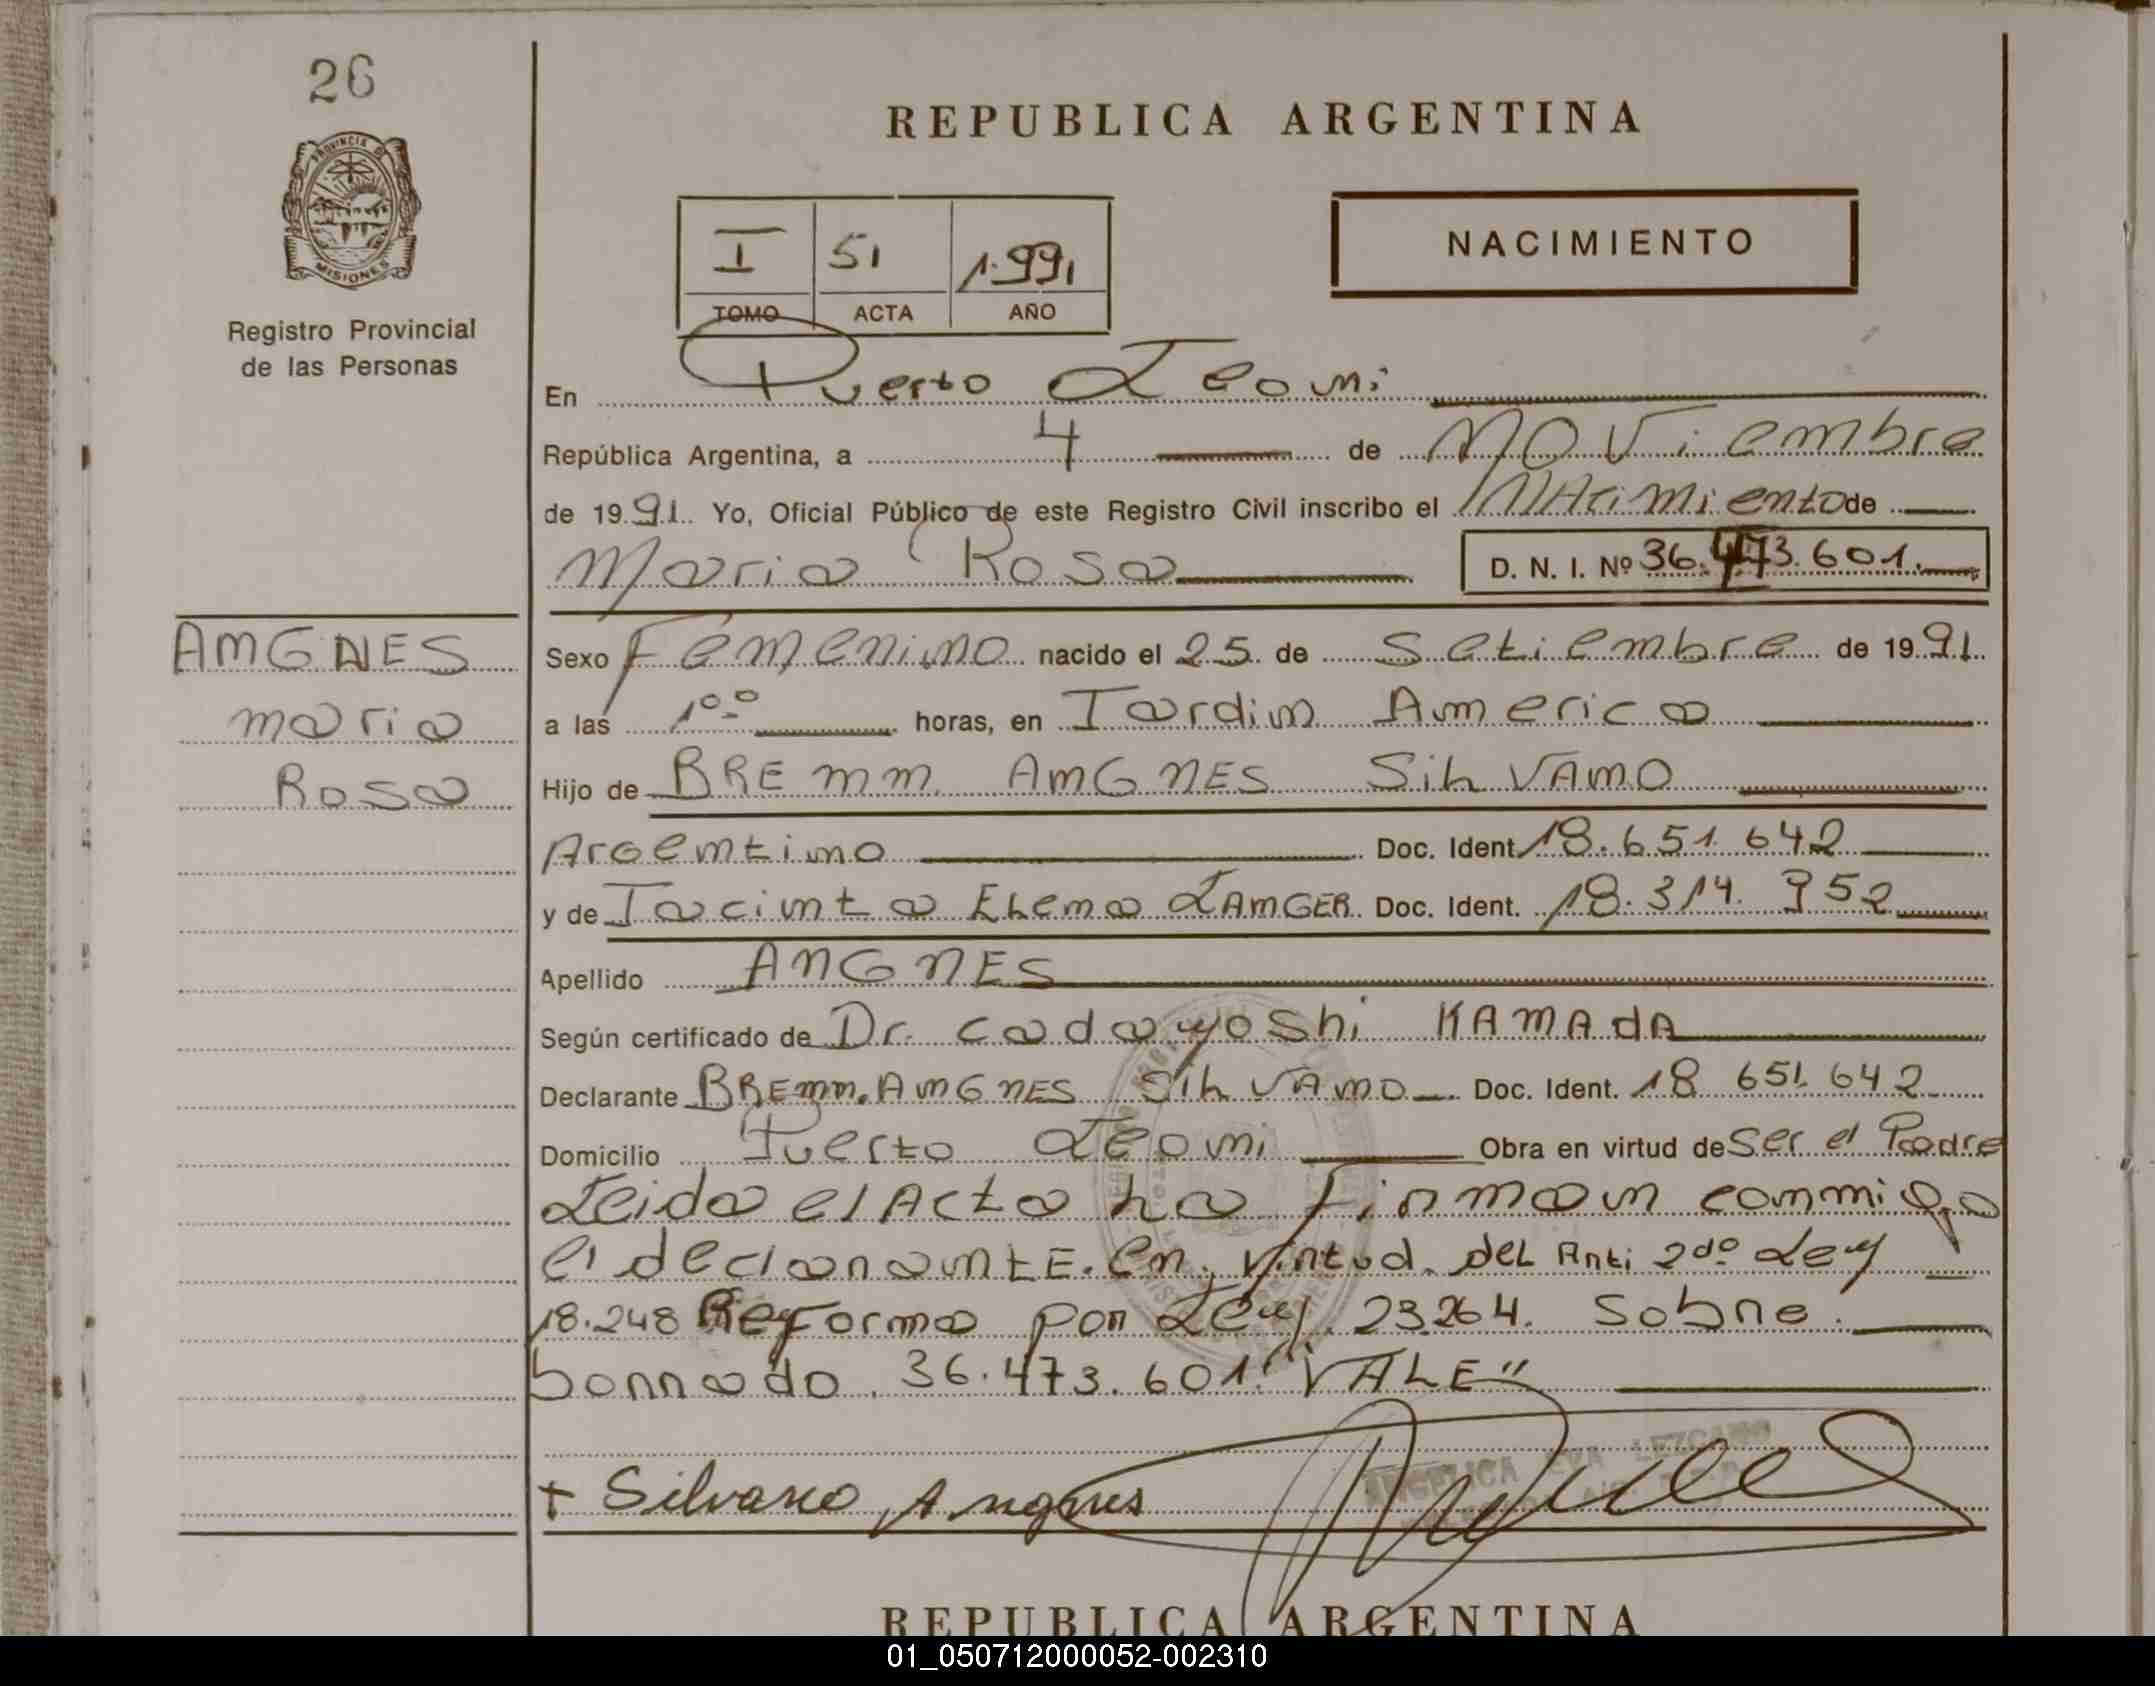 26
REPUBLICA ARGENTINA
PROVINCIA DE
MISIONES
Registro Provincial
de las Personas
NACIMIENTO
I 51 1.991
TOMO ACTA AÑO
En Puerto Leoni
República Argentina, a 4 de Noviembre
de 1991. Yo, Oficial Público de este Registro Civil inscribo el NAcimiento de
Maria Rosa D. N. I. Nº 36.473.601.
ANGNES
maria
Rosa
Sexo Femenino nacido el 25 de Setiembre de 1991.
a las 1°° horas, en Jardin America
Hijo de BREmm ANGNES SiLVANO
Argentino Doc. Ident. 18.651.642
y de Jacinta ELena LANGER Doc. Ident. 18.314.952
Apellido ANGNES
Según certificado de Dr. cadayoshi KAMAdA
Declarante BREmm. ANGNES SiLVANO Doc. Ident. 18 651.642
Domicilio Puerto Leoni Obra en virtud de Ser el Padre
Leida el Acta la Firman conmigo
el declarante. En virtud del Arti 2do Ley
18.248 Reforma por Ley. 23.264. Sobre
borrado. 36.473.601. "VALE"
+ Silvano Angnes
ANGELICA EVA LEZCANO
REPUBLICA ARGENTINA
01_050712000052-002310